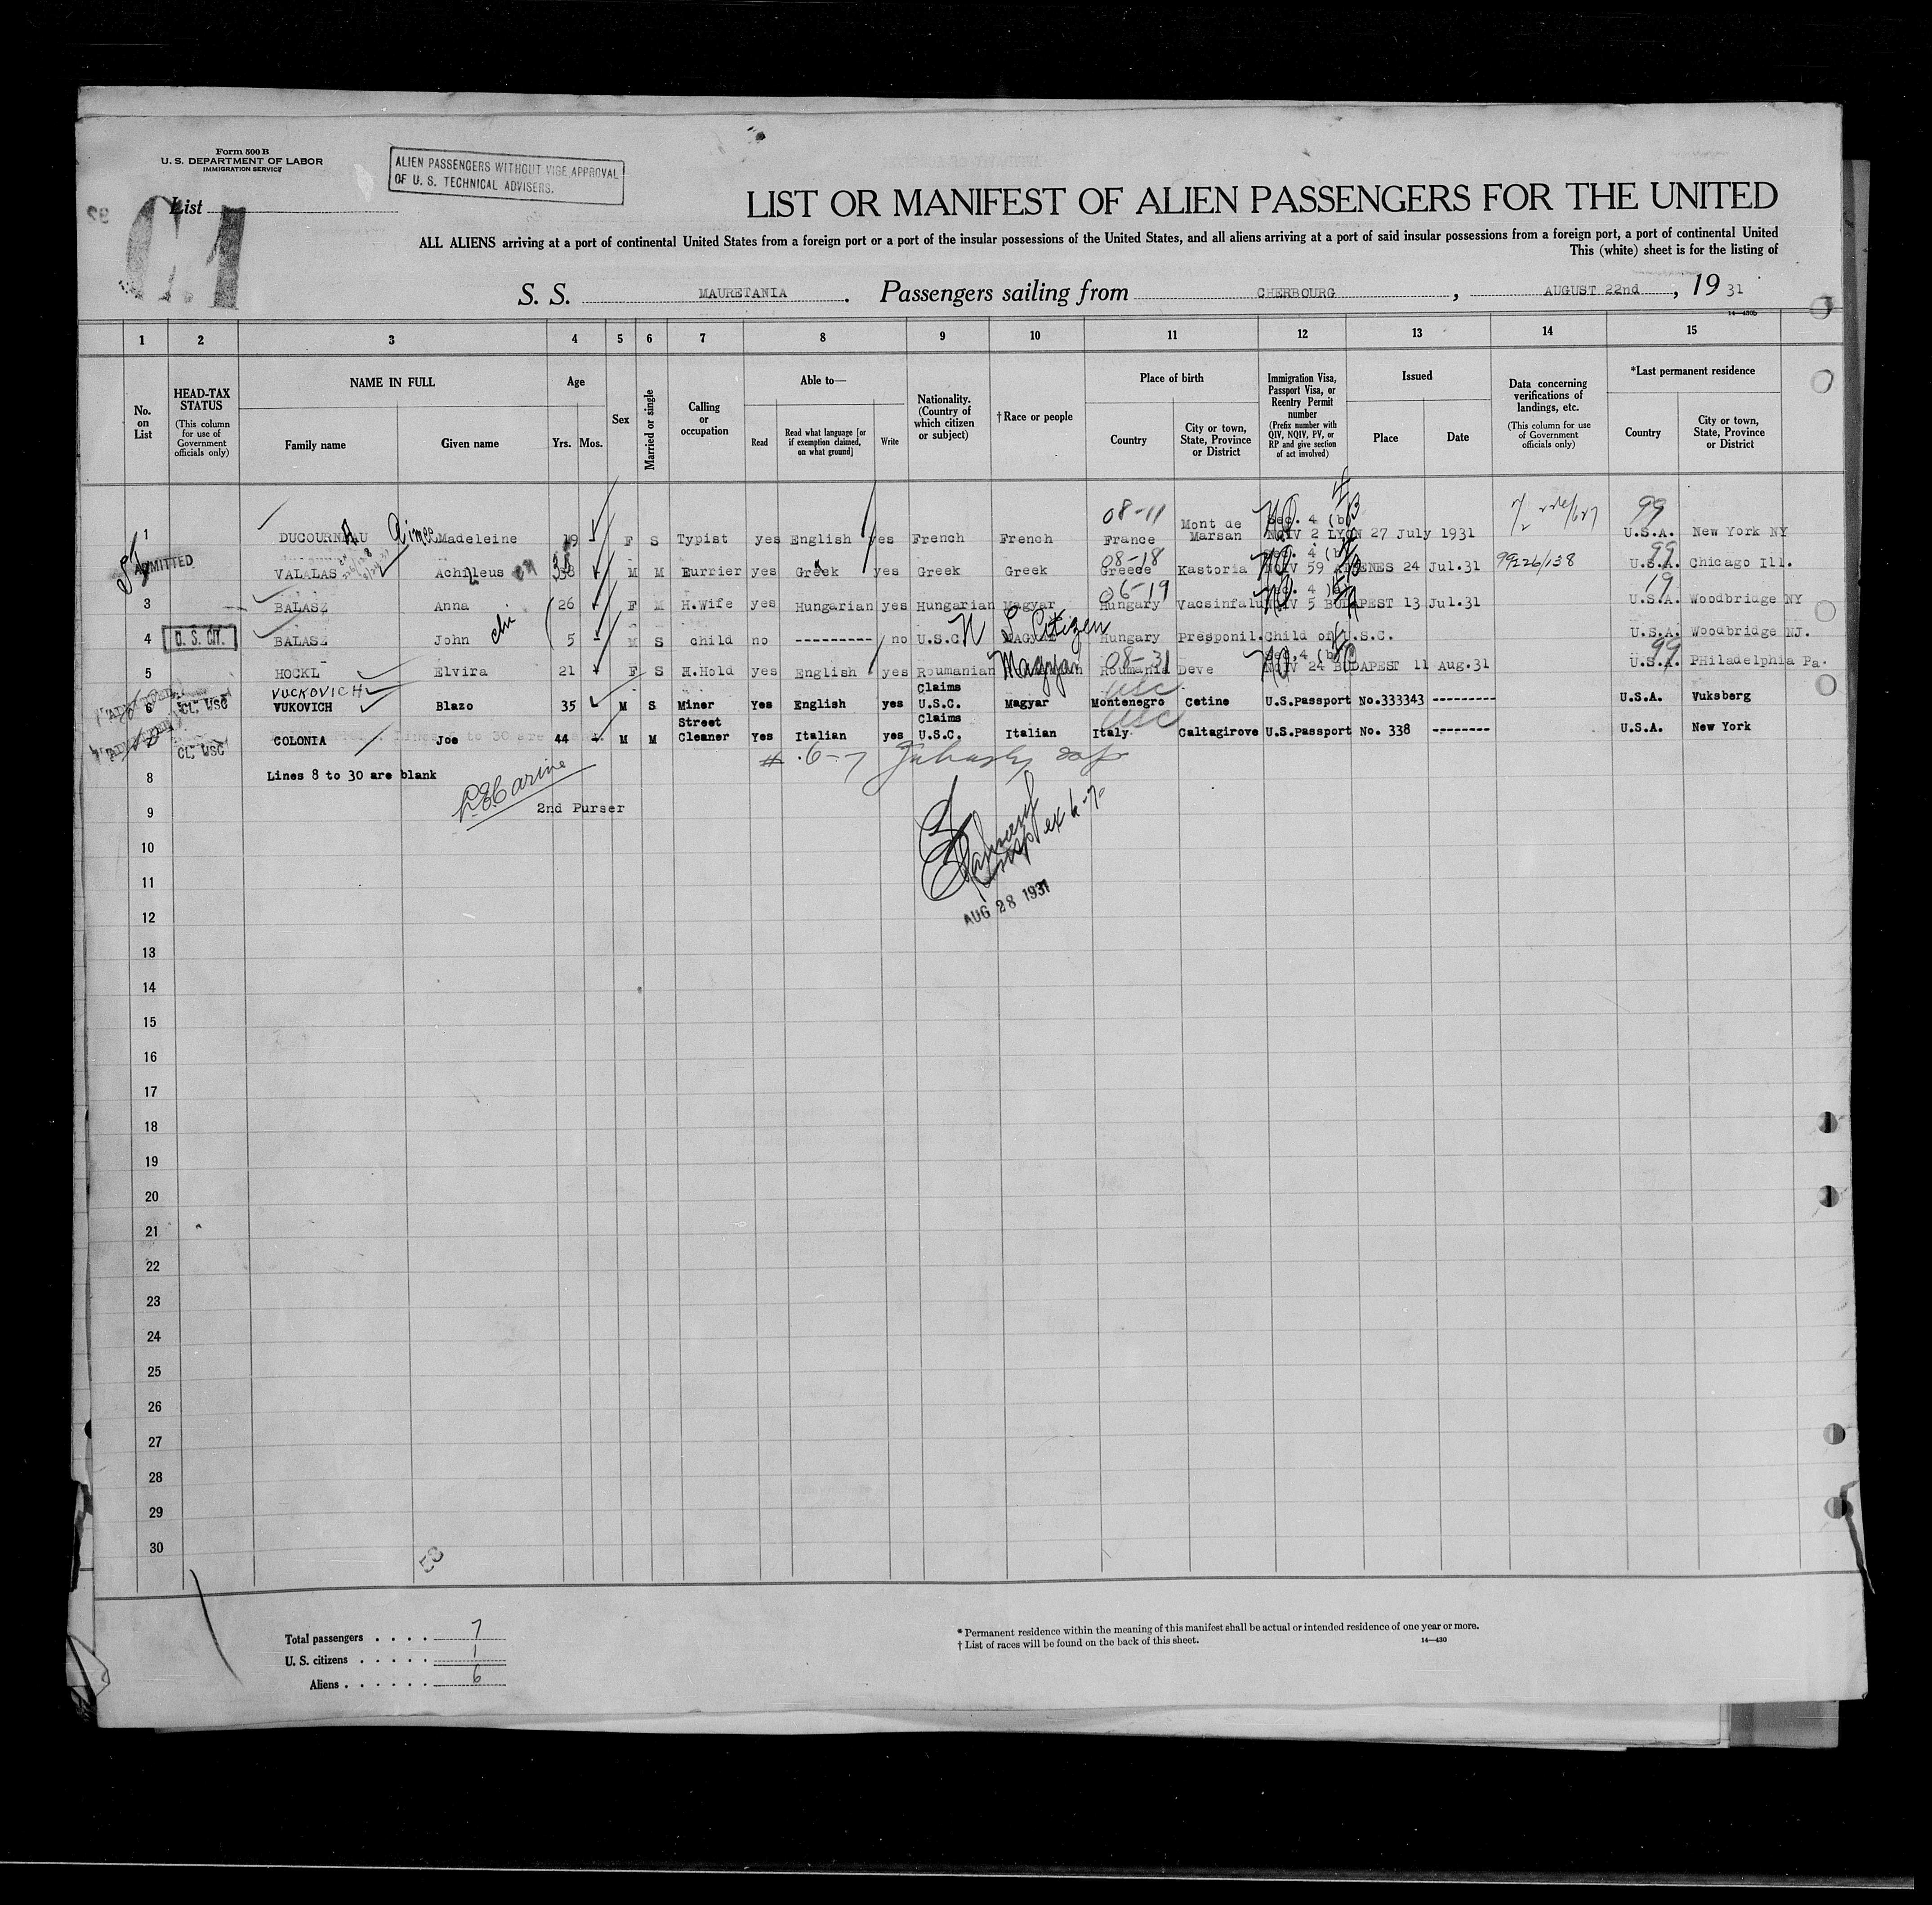 Form 500 B
U. S. DEPARTMENT OF LABOR
IMMIGRATION SERVICE
ALIEN PASSENGERS WITHOUT VISE APPROVAL
OF U. S. TECHNICAL ADVISERS.
List
LIST OR MANIFEST OF ALIEN PASSENGERS FOR THE UNITED
ALL ALIENS arriving at a port of continental United States from a foreign port or a port of the insular possessions of the United States, and all aliens arriving at a port of said insular possessions from a foreign port, a port of continental United
This (white) sheet is for the listing of
S. S. MAURETANIA . Passengers sailing from CHERBOURG , AUGUST 22nd , 19 31
14—430b
1 2 3 4 5 6 7 8 9 10 11 12 13 14 15
No. on List
HEAD-TAX STATUS (This column for use of Government officials only)
NAME IN FULL
Family name Given name
Age
Yrs. Mos.
Sex
Married or single
Calling or occupation
Able to—
Read Read what language [or if exemption claimed, on what ground] Write
Nationality. (Country of which citizen or subject)
†Race or people
Place of birth
Country City or town, State, Province or District
Immigration Visa, Passport Visa, or Reentry Permit number (Prefix number with QIV, NQIV, PV, or RP and give section of act involved)
Issued
Place Date
Data concerning verifications of landings, etc. (This column for use of Government officials only)
*Last permanent residence
Country City or town, State, Province or District
08-11 99
1 DUCOURNEAU Aimee Madeleine 19 F S Typist yes English yes French French France Mont de Marsan Sec. 4 (b) NQIV 2 LYON 27 July 1931 U.S.A. New York NY
ADMITTED 08-18 99
VALALAS Achilleus 38 M M Furrier yes Greek yes Greek Greek Greece Kastoria NQIV 59 ATHENES 24 Jul.31 99226/138 U.S.A. Chicago Ill.
06-19 19
3 BALASZ Anna 26 F M H.Wife yes Hungarian yes Hungarian Magyar Hungary Vacsinfalu NQIV 5 BUDAPEST 13 Jul.31 U.S.A. Woodbridge NY
4 U. S. CIT. BALASZ John 5 M S child no ---------- no U.S.C. Citizen Hungary Presponil. Child of U.S.C. U.S.A. Woodbridge NJ.
08-31 Sec.4 (b) 99
5 HOCKL Elvira 21 F S H.Hold yes English yes Roumanian Magyar Roumania Deve NQIV 24 BUDAPEST 11 Aug.31 U.S.A. PHiladelphia Pa.
VUCKOVICH USC
6 CL. USC VUKOVICH Blazo 35 M S Miner Yes English yes Claims U.S.C. Magyar Montenegro Cetine U.S.Passport No.333343 --------- U.S.A. Vuksberg
USC
CL. USC COLONIA Joe 44 M M Street Cleaner Yes Italian yes Claims U.S.C. Italian Italy Caltagirove U.S.Passport No. 338 -------- U.S.A. New York
# 6-7
8 Lines 8 to 30 are blank
9 2nd Purser
10
11
AUG 28 1931
12
13
14
15
16
17
18
19
20
21
22
23
24
25
26
27
28
29
30
Total passengers . . . . 7
U. S. citizens . . . . . 1
Aliens . . . . . . 6
* Permanent residence within the meaning of this manifest shall be actual or intended residence of one year or more.
† List of races will be found on the back of this sheet.
14—430